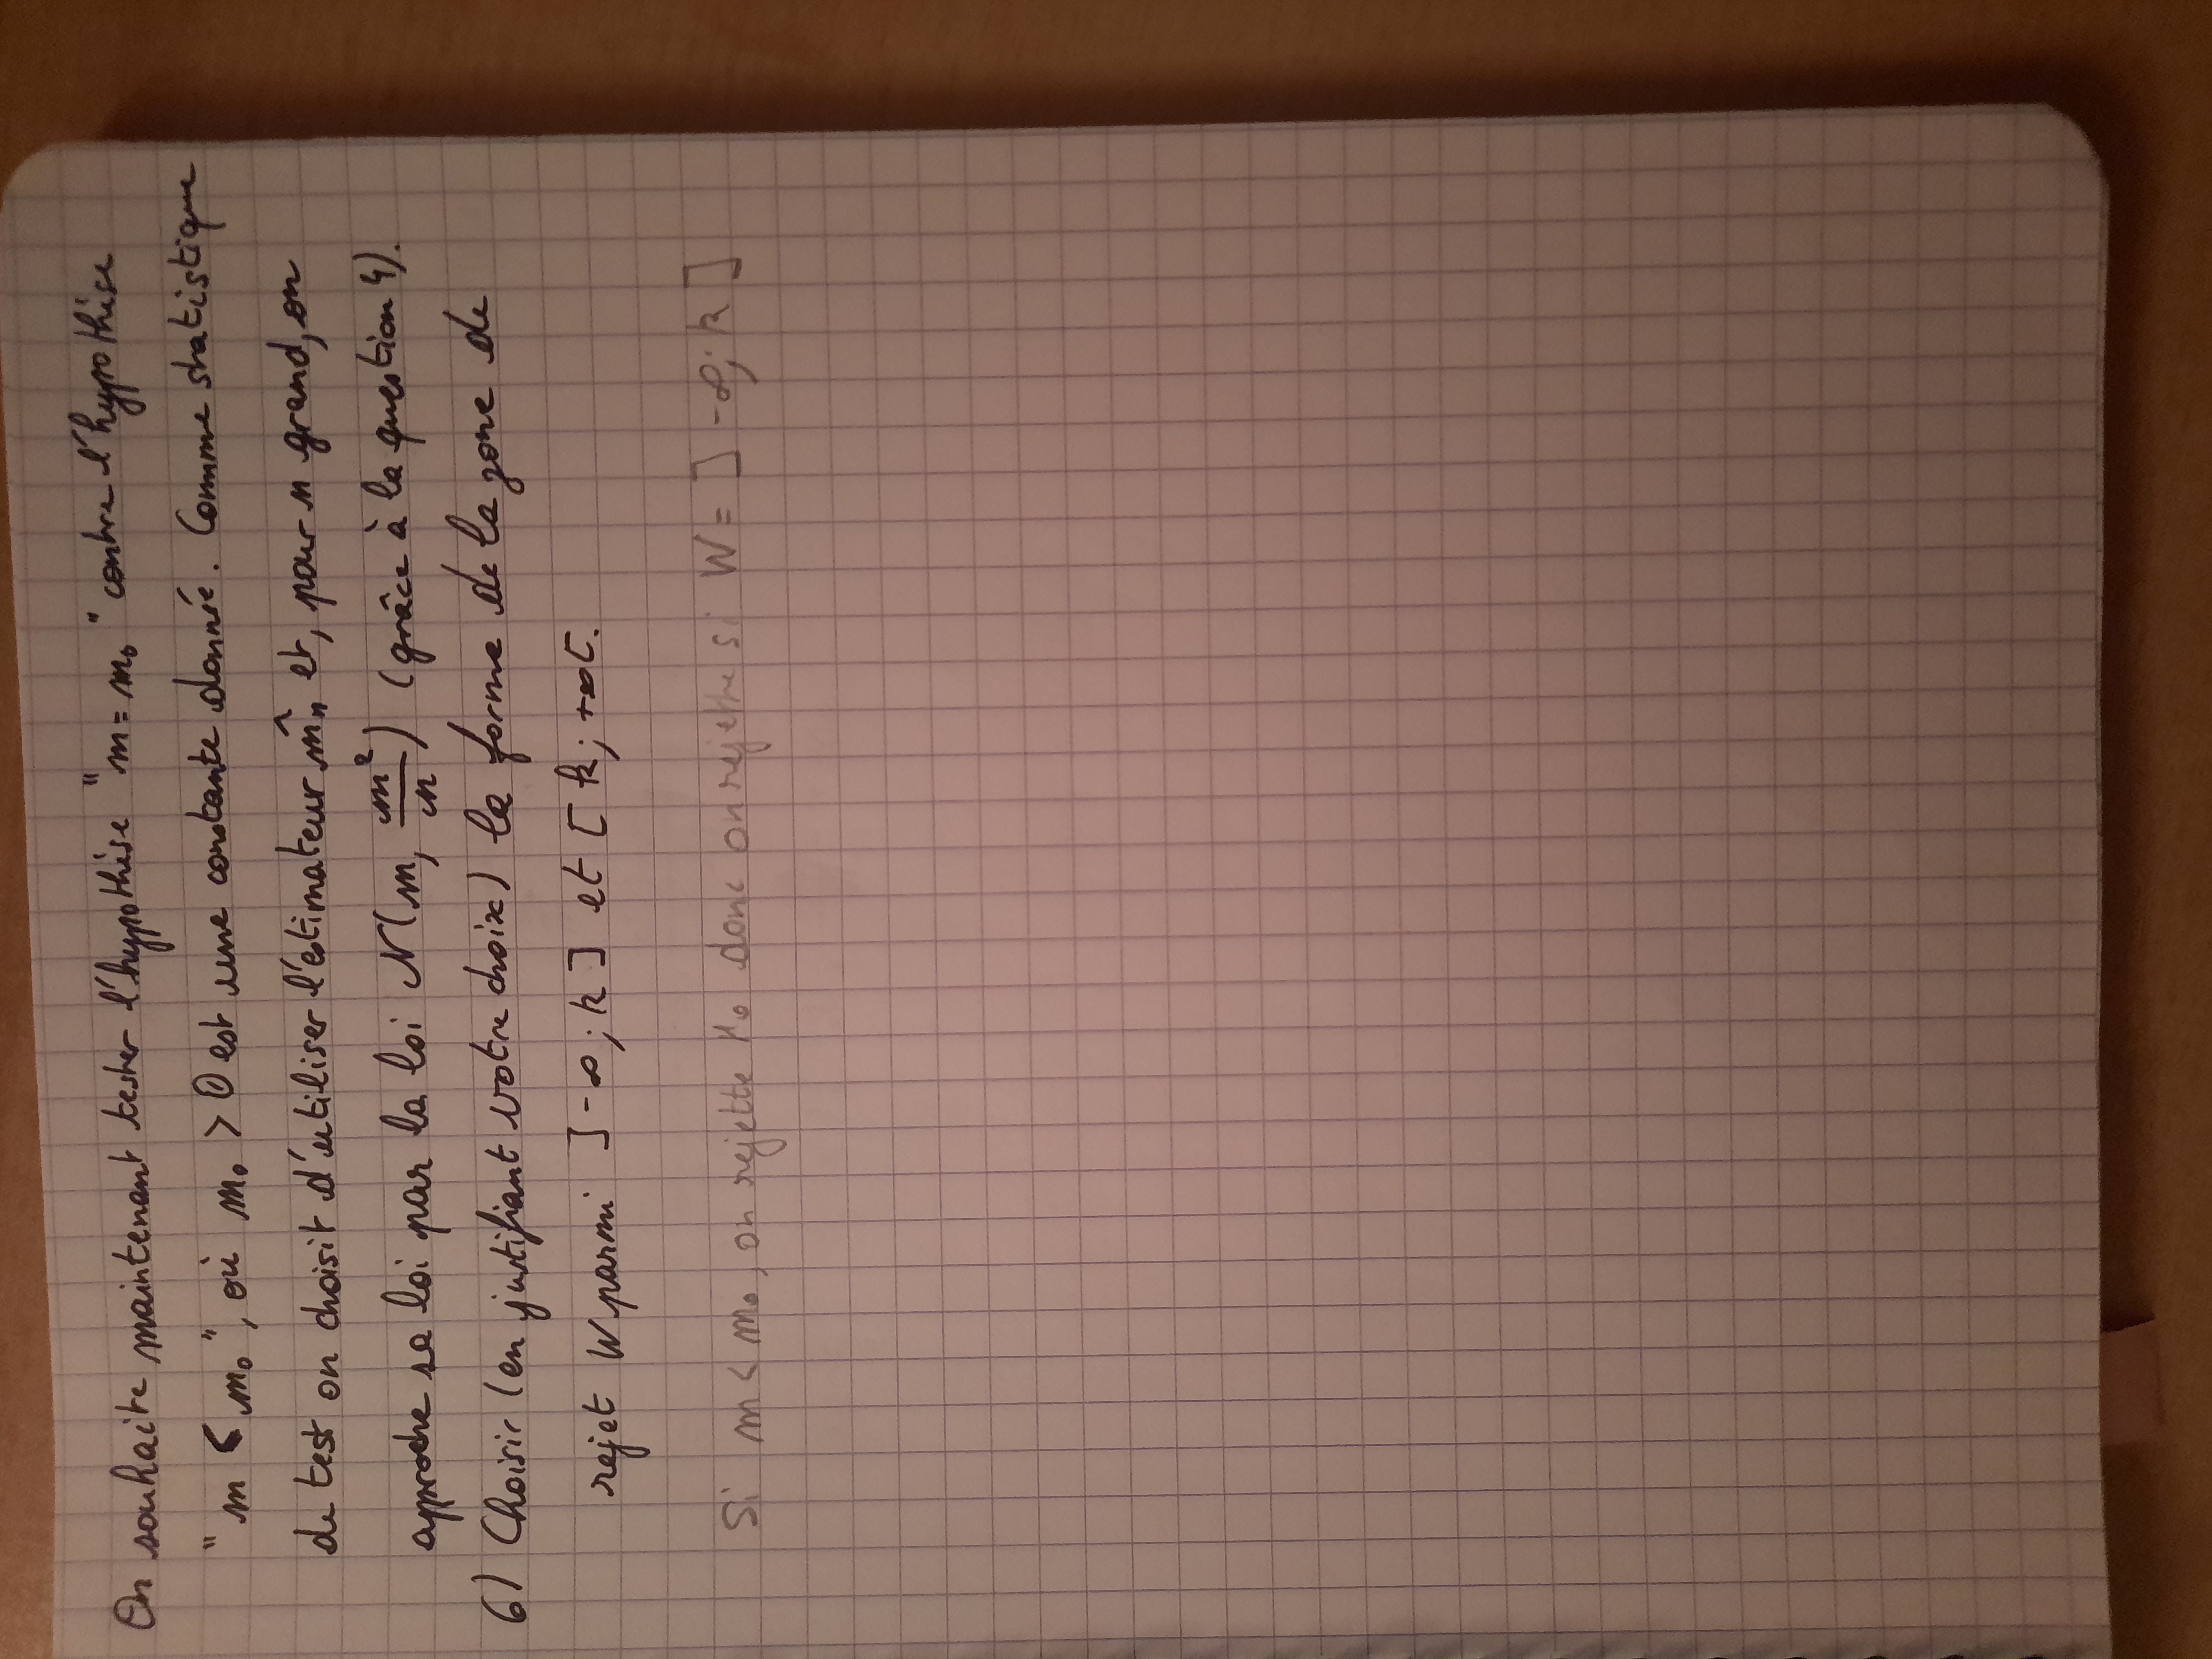 On souhaite maintenant tester l'hypothèse "m = m₀" contre l'hypothèse
"m < m₀", où m₀ > 0 est une constante donnée. Comme statistique
de test on choisit d'utiliser l'estimateur m̂ₙ et, pour n grand, on
approche sa loi par la loi N(m, m²/n) (grâce à la question 4).
6) Choisir (en justifiant votre choix) la forme de la zone de
rejet W parmi ]-∞; k] et [k; +∞[.
Si m < m₀, on rejette H₀ donc on rejette si W = ]-∞; k]